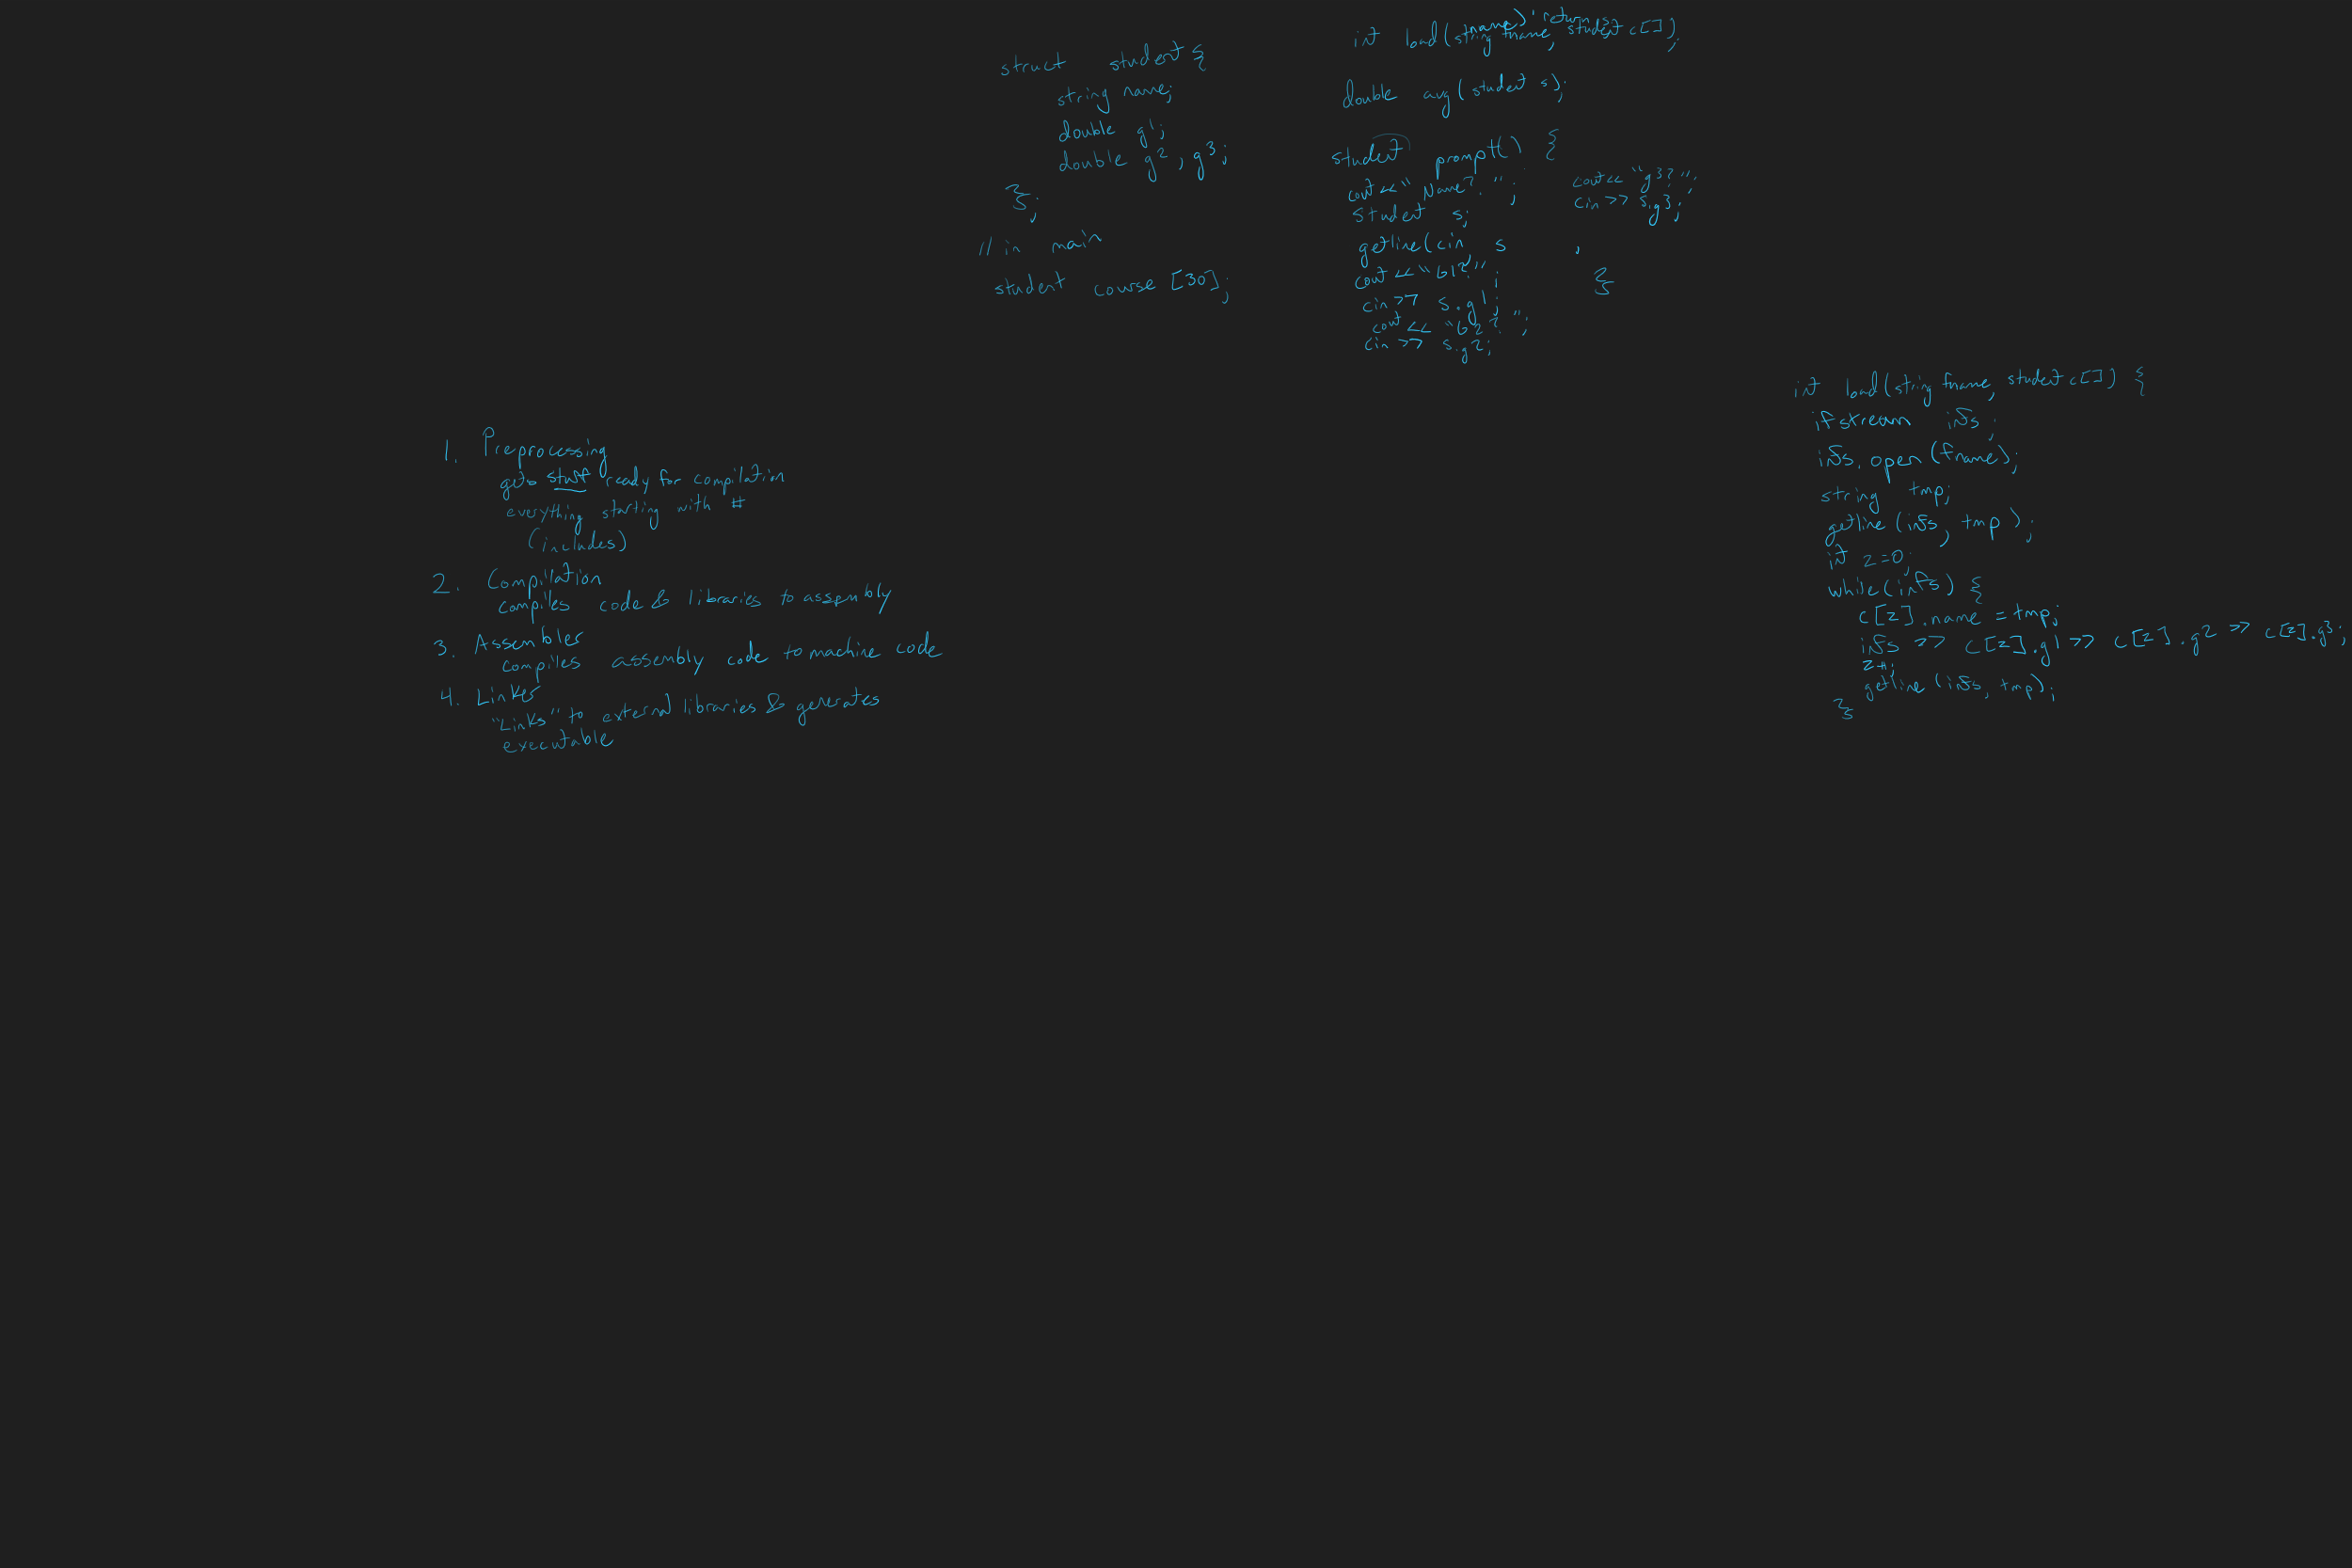 struct student {
string name;
double g1;
double g2, g3;
};
// in main
student course [30];
int load(string fname, student c[]);
double avg( student s);
student prompt() {
cout << "Name? ";
student s;
getline(cin, s
cout << "G1?";
cin >> s.g1;
cout << "G2? ";
cin >> s.g2;
cout << "g3? ";
cin >> s.g3;
}
1. Preprocessing
gets stuff ready for compilation
everything starting with #
(includes)
2. Compilation
compiles code & libraries to assembly
3. Assembler
compiles assembly code to machine code
4. Linker
"Links" to external libraries & generates
executable
int load(string fname, student c[]) {
ifstream inFs;
inFs.open (fname);
string tmp;
getline (inFs, tmp);
int z=0;
while (inFs) {
c[z].name = tmp;
inFs >> c[z].g1 >> c[z].g2 >> c[z].g3;
z++;
getline (inFs, tmp);
}